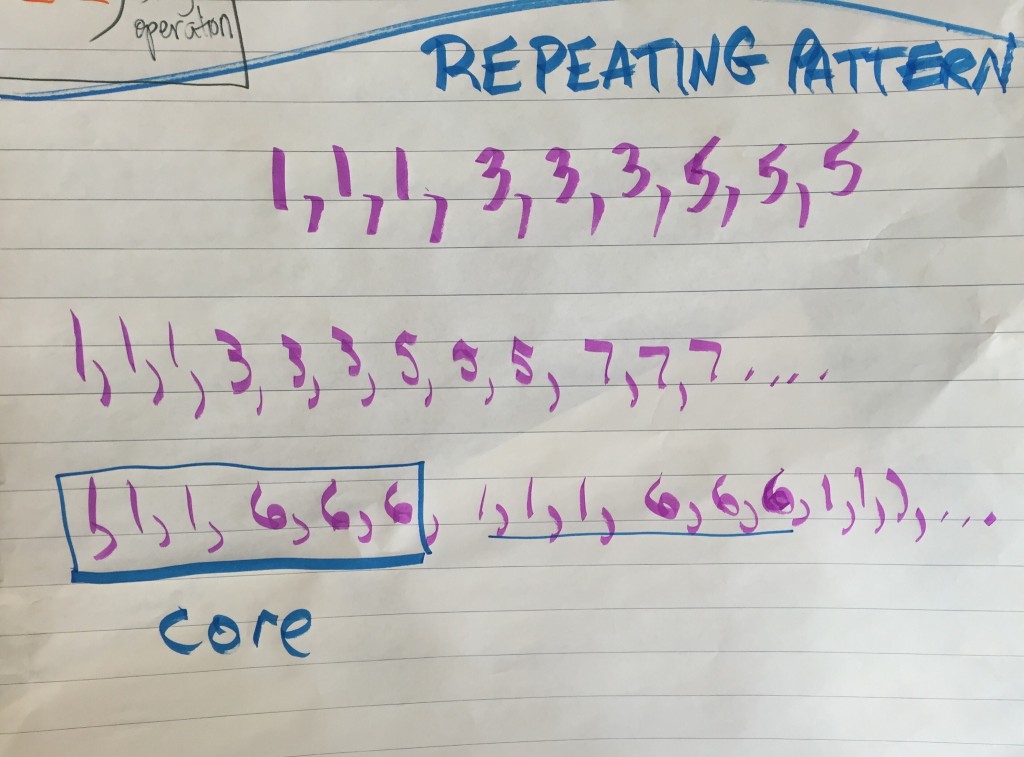 operation
REPEATING PATTERN
1, 1, 1, 3, 3, 3, 5, 5, 5
1, 1, 1, 3, 3, 3, 5, 5, 5, 7, 7, 7 ....
1, 1, 1, 6, 6, 6, 1, 1, 1, 6, 6, 6, 1, 1, 1, ...
core